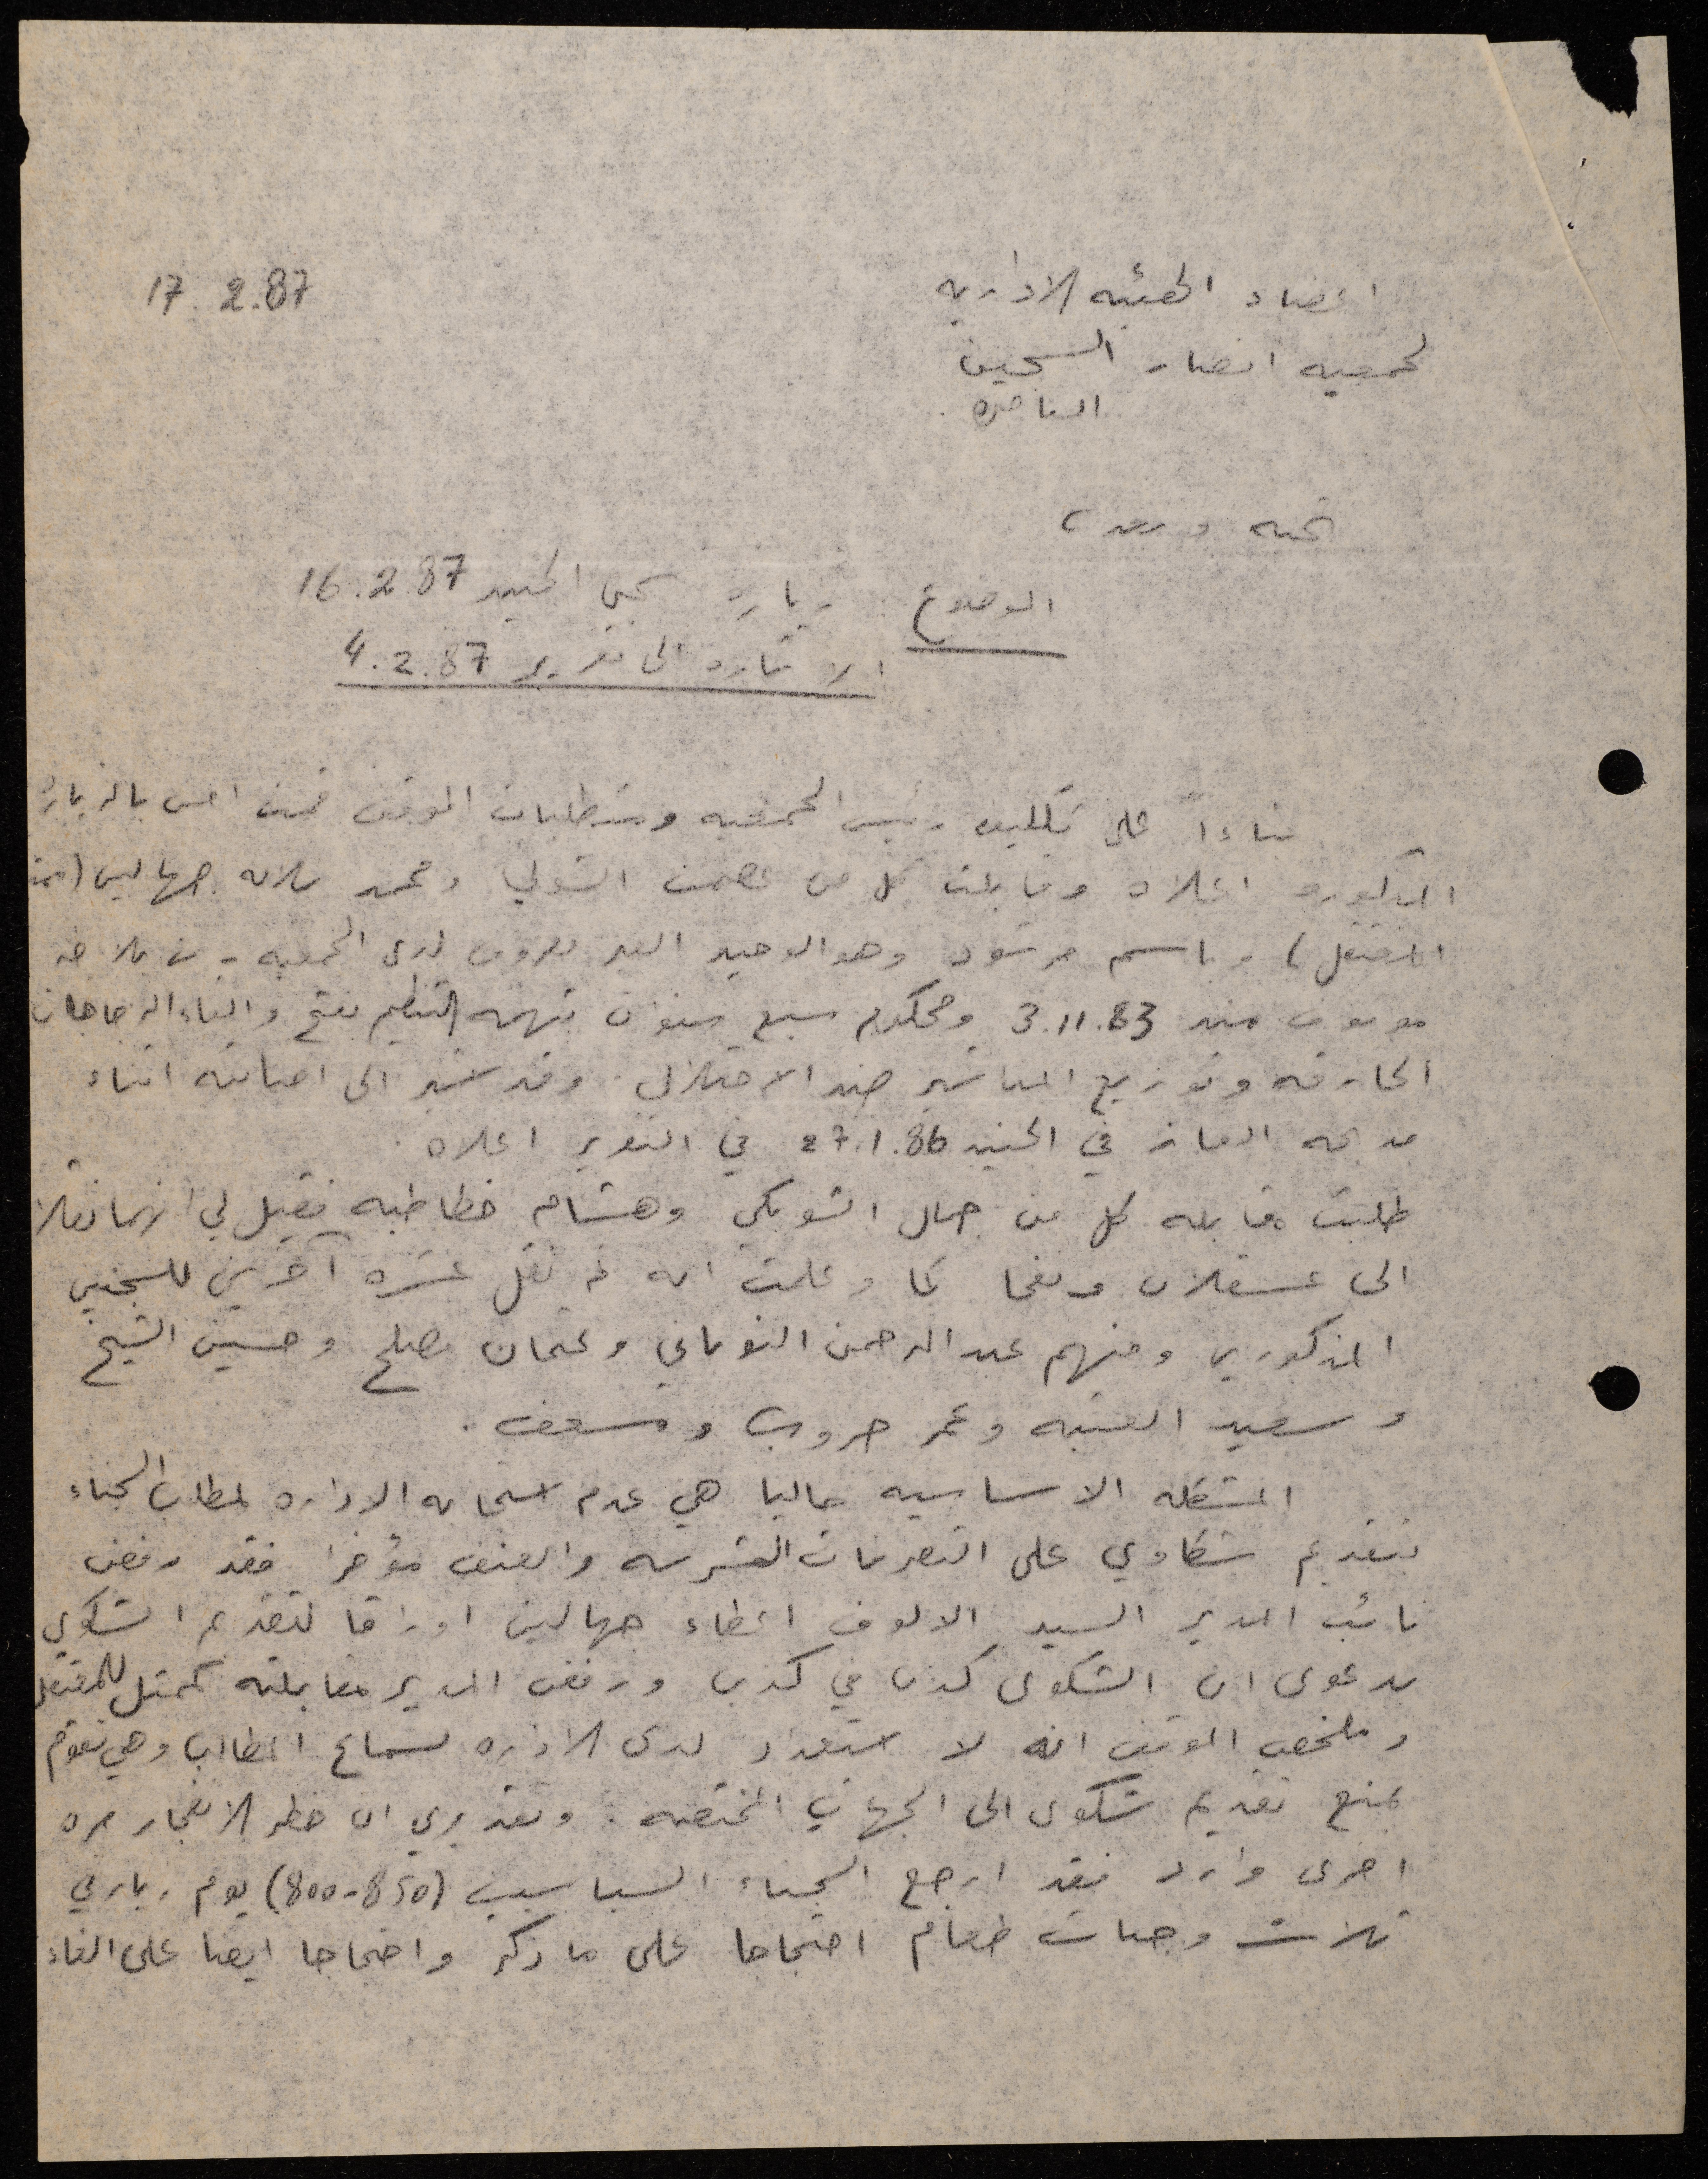 17.2.87
اعضاء الهيئه الاداريه
لجمعيه انصار السجين
الناصره.
تحيه وبعد،
الموضوع زياره سجن الجنيد 16.2.87
الاشاره الى تقرير 4.2.87
بناءاً على تكليف رئيس الجمعيه ومتطلبات الموقف قمت امس بالزيارة
المذكوره اعلاه وقابلت كل من عصمت الشولي ومحمد سلامه جهالين (ممثل
المعتقل) وباسم مرشود وهو الوحيد الغير معروف لدى الجمعيه - من
موقوف منذ 3.11.83 ومحكوم سبع سنوات بتهمه التنظيم لفتح والقاء الزجاجات
الحارقه وتوزيع المناشير ضد الاحتلال. وقد اشير الى اصابته اثناء
مذبحه الغاز في الجنيد 27.1.86 في التقرير اعلاه.
طلبت مقابله كل من جمال الشوبكي وهشام خطاطبه فقيل لي انهما نقلا
الى عسقلان ونفحا كما وعلمت انه تم نقل عشره آخرين للسجنين
المذكورين ومنهم عبد الرحمن النوباني وعثمان مصلح وحسين الشيخ
وسعيد العتبه وعمر حروب
المشكله الاساسيه حاليا هي عدم استجابه الاداره لمطلب السجناء
بتقديم شكاوي على التصرفات الشرسه والعنف مؤخرا فقد رفض
نائب المدير السيد الالوف اعطاء جهالين اوراقا لتقديم الشكوى
بدعوى ان الشكوى كذب في كذب ورفض المدير مقابلته كممثل للمعتقل
وملخص الموقف انه لا استعداد لدى الاداره لسماع المطالب وهي تقوم
بمنع تقديم شكوى الى الجهات المختصه. وتقديري ان خطر الانفجار مره
اخرى وارد فقد ارجع السجناء السياسيين (800-850) يوم زيارتي
ثلاث وجبات طعام احتجاجا على ما ذكر واحتجاجا ايضا على الغاء